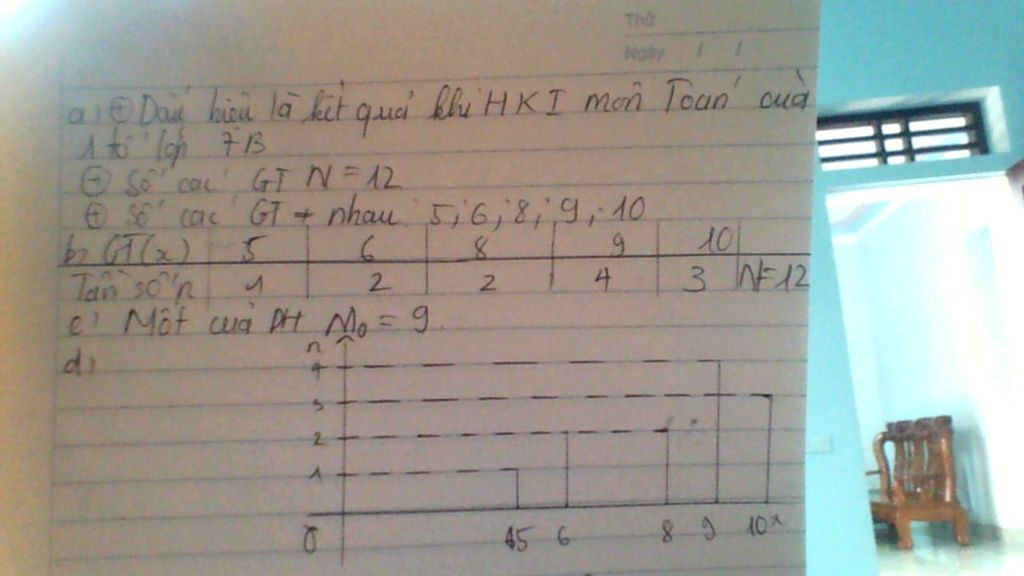 Thứ
Ngày / /
a, + Dấu hiệu là kết quả khi HKI môn Toán của
1 tổ lớp 7B
+ Số các GT N = 12
+ Số các GT ≠ nhau: 5; 6; 8; 9; 10
b, GT(x) 5 6 8 9 10
Tần số n 1 2 2 4 3 N=12
c, Mốt của DH M₀ = 9.
d,
n
4
3
2
1
0 5 6 8 9 10 x